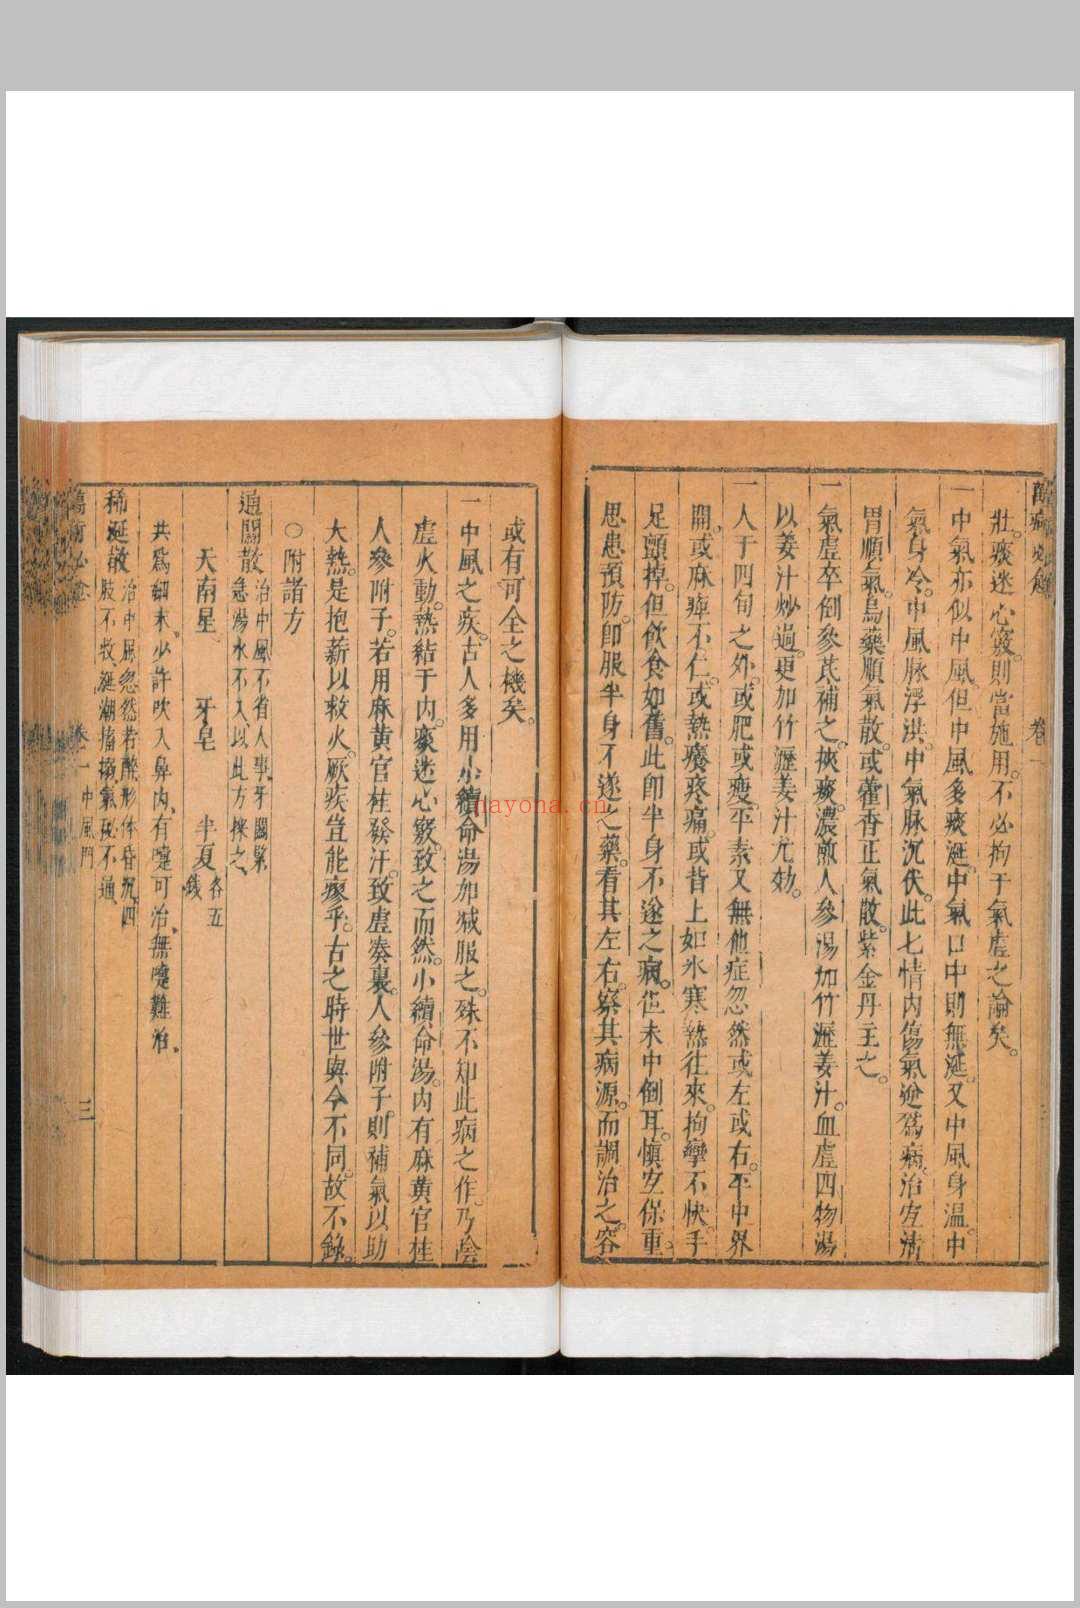 萬病必愈
卷一
壯痰迷心竅則當施用不必拘于氣虛之論矣
一中氣亦似中風但中風多痰涎中氣口中則無涎又中風身溫中
氣身冷中風脉浮洪中氣脉沉伏此七情內傷氣逆爲病治宜沽
胃順氣烏藥順氣散或藿香正氣散紫金丹主之
一氣虛卒倒參芪補之挾痰濃煎人參湯加竹瀝姜汁血虛四物湯
以姜汁炒過更加竹瀝姜汁尤効
一人于四旬之外或肥或瘦平素又無他症忽然或左或右平中界
開或麻痺不仁或熱癢疼痛或背上如氷寒熱往來拘攣不快手
足顫掉但飲食如舊此即半身不遂之病但未中倒耳慎宜保重
思患預防即服半身不遂之藥看其左右察其病源而調治之容
或有可全之機矣
一中風之疾古人多用小續命湯加減服之殊不知此病之作乃陰
虛火動熱結于內痰迷心竅致之而然小續命湯內有麻黃官桂
人參附子若用麻黃官桂發汗致虛奏裏人參附子則補氣以助
大熱是抱薪以救火厥疾豈能瘳乎古之時世與今不同故不錄
○附諸方
通關散 治中風不省人事牙關緊
急湯水不入以此方擦之
天南星 牙皂 半夏各五
錢
共爲細末少許吹入鼻內有嚏可治無嚏難治
稀涎散 治中風忽然若醉形体昏沉四
肢不收涎潮搐搦氣秘不通
萬病必愈
卷一 中風門
三
nayona.cn